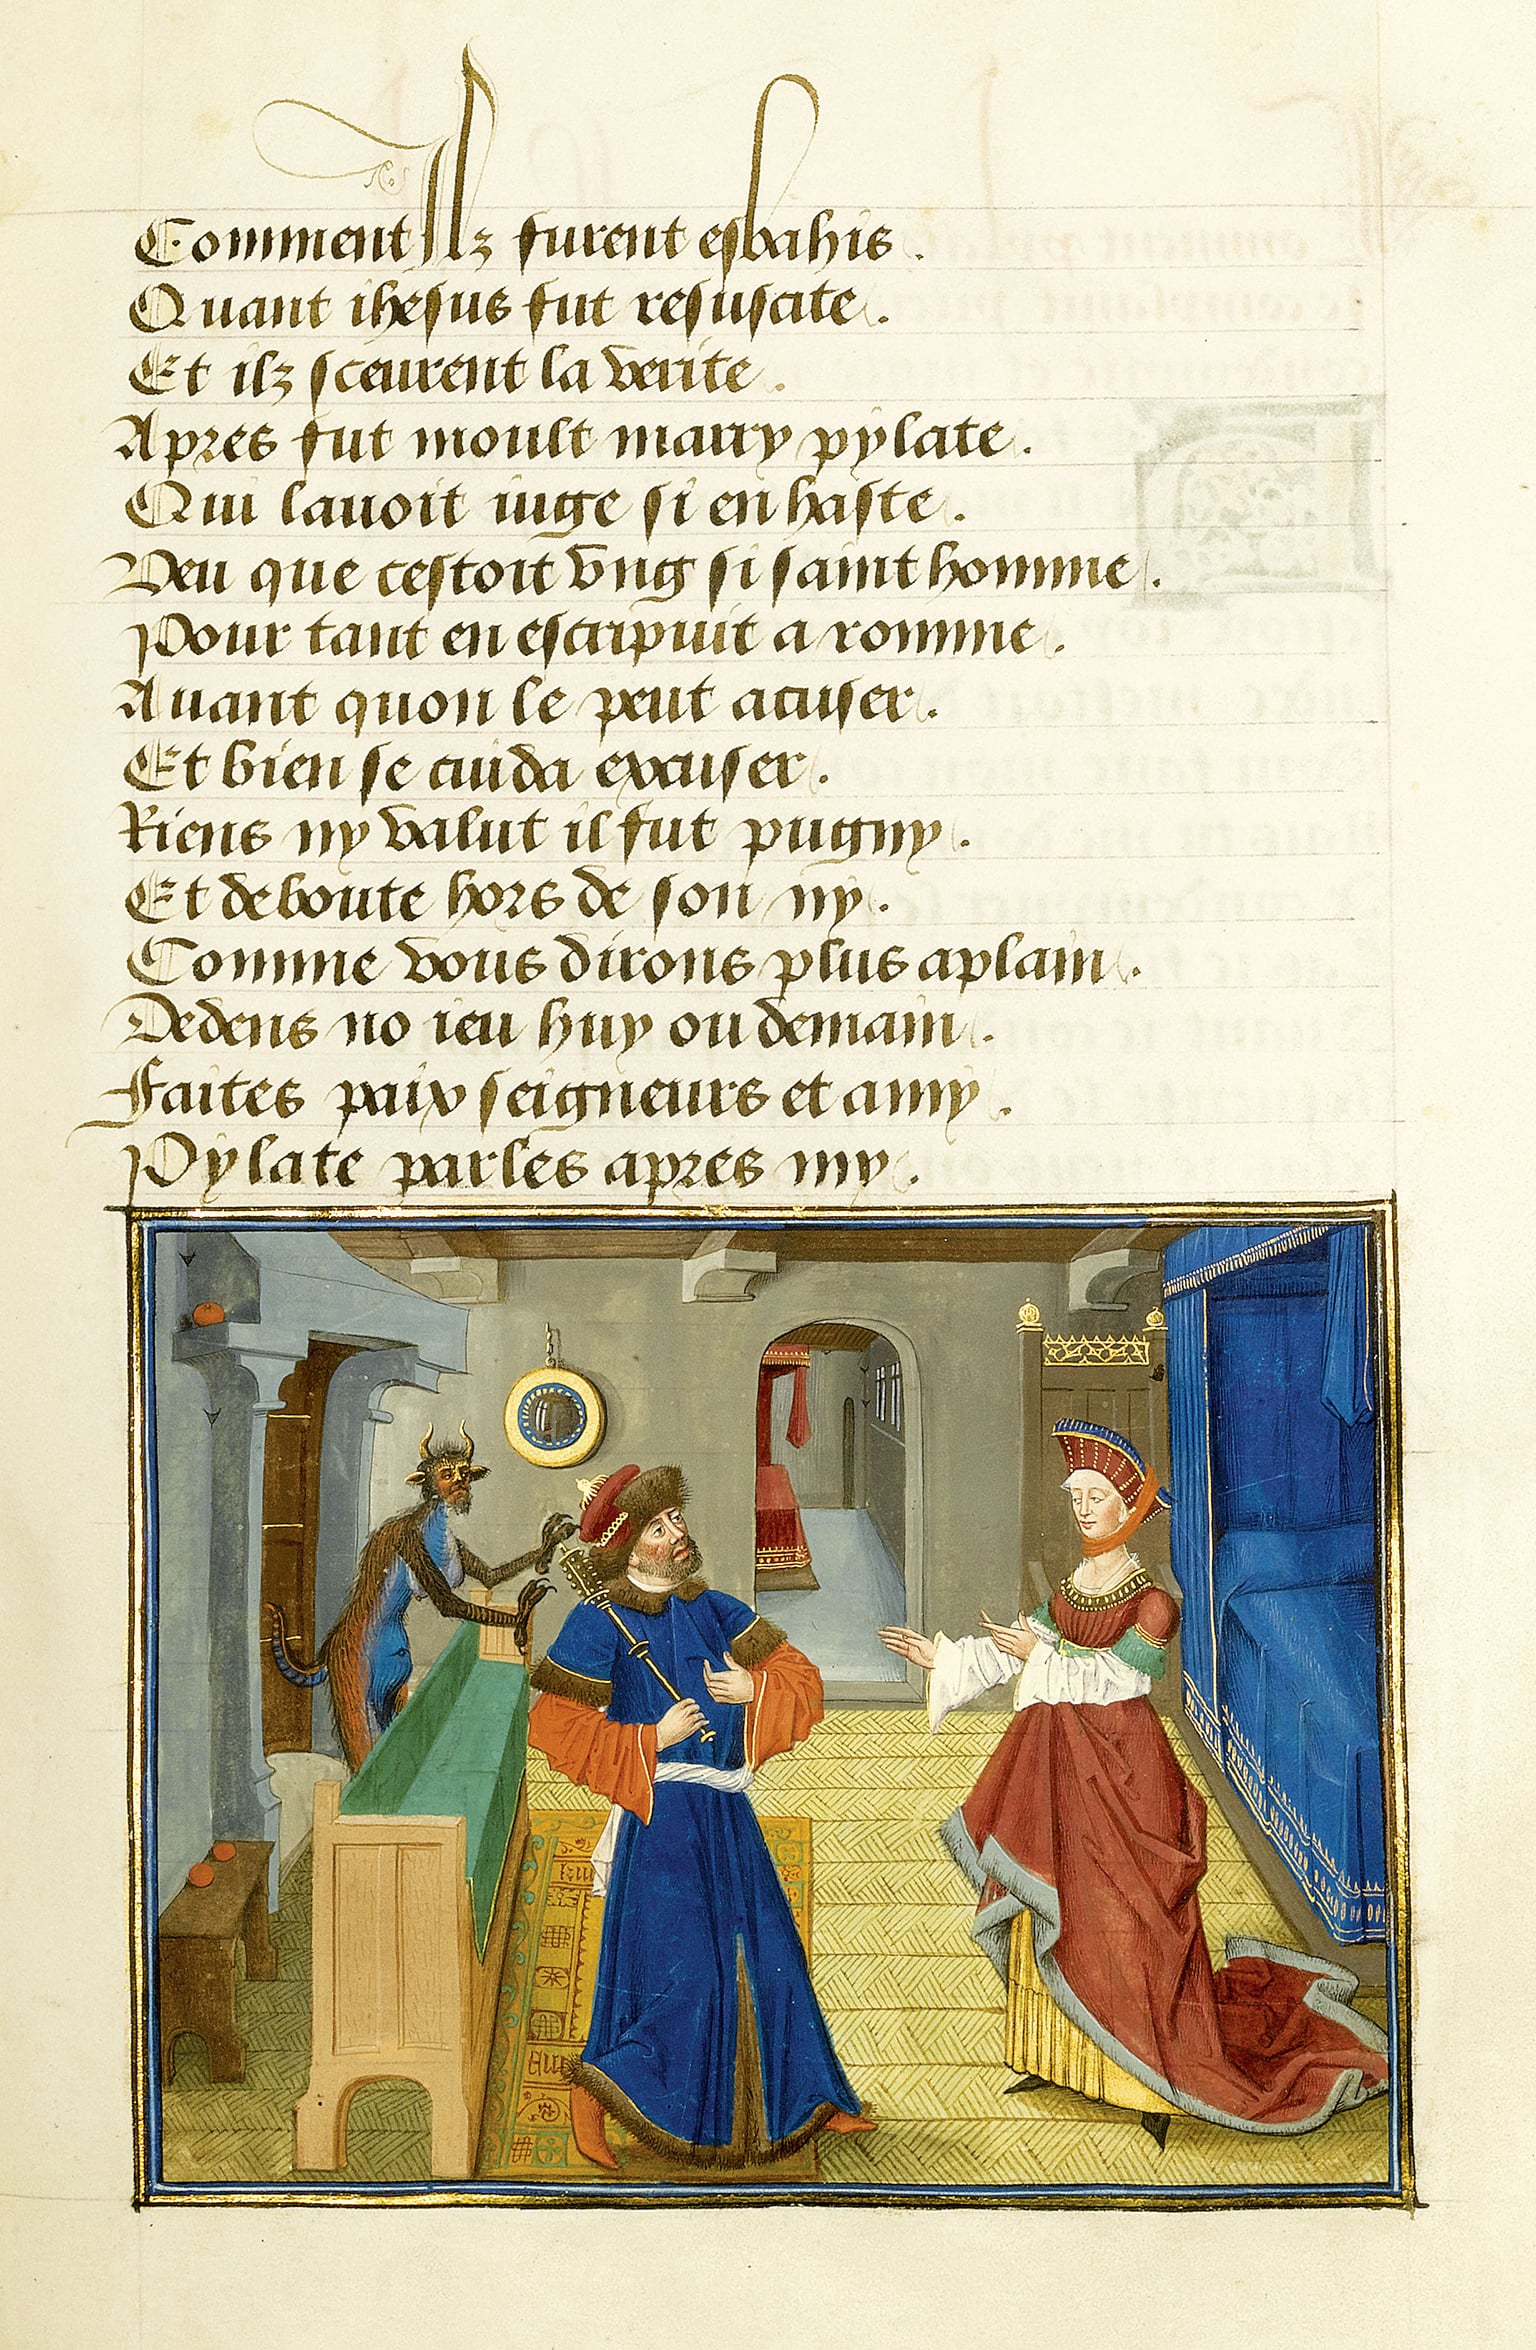 Comment Ilz furent esbahis.
Quant ihesus fut resuscite.
Et ilz sceurent la verite.
Apres fut moult marry pylate.
Qui lauoit iuge si en haste.
Veu que cestoit vng si saint homme.
Pour tant en escripuit a romme.
Auant quon le peut acuser.
Et bien se cuida excuser.
Riens ny valut il fut pugny.
Et deboute hors de son ny.
Comme vous dirons plus aplain.
Dedens no ieu huy ou demain.
Faites paix seigneurs et amy.
Pylate parles apres my.